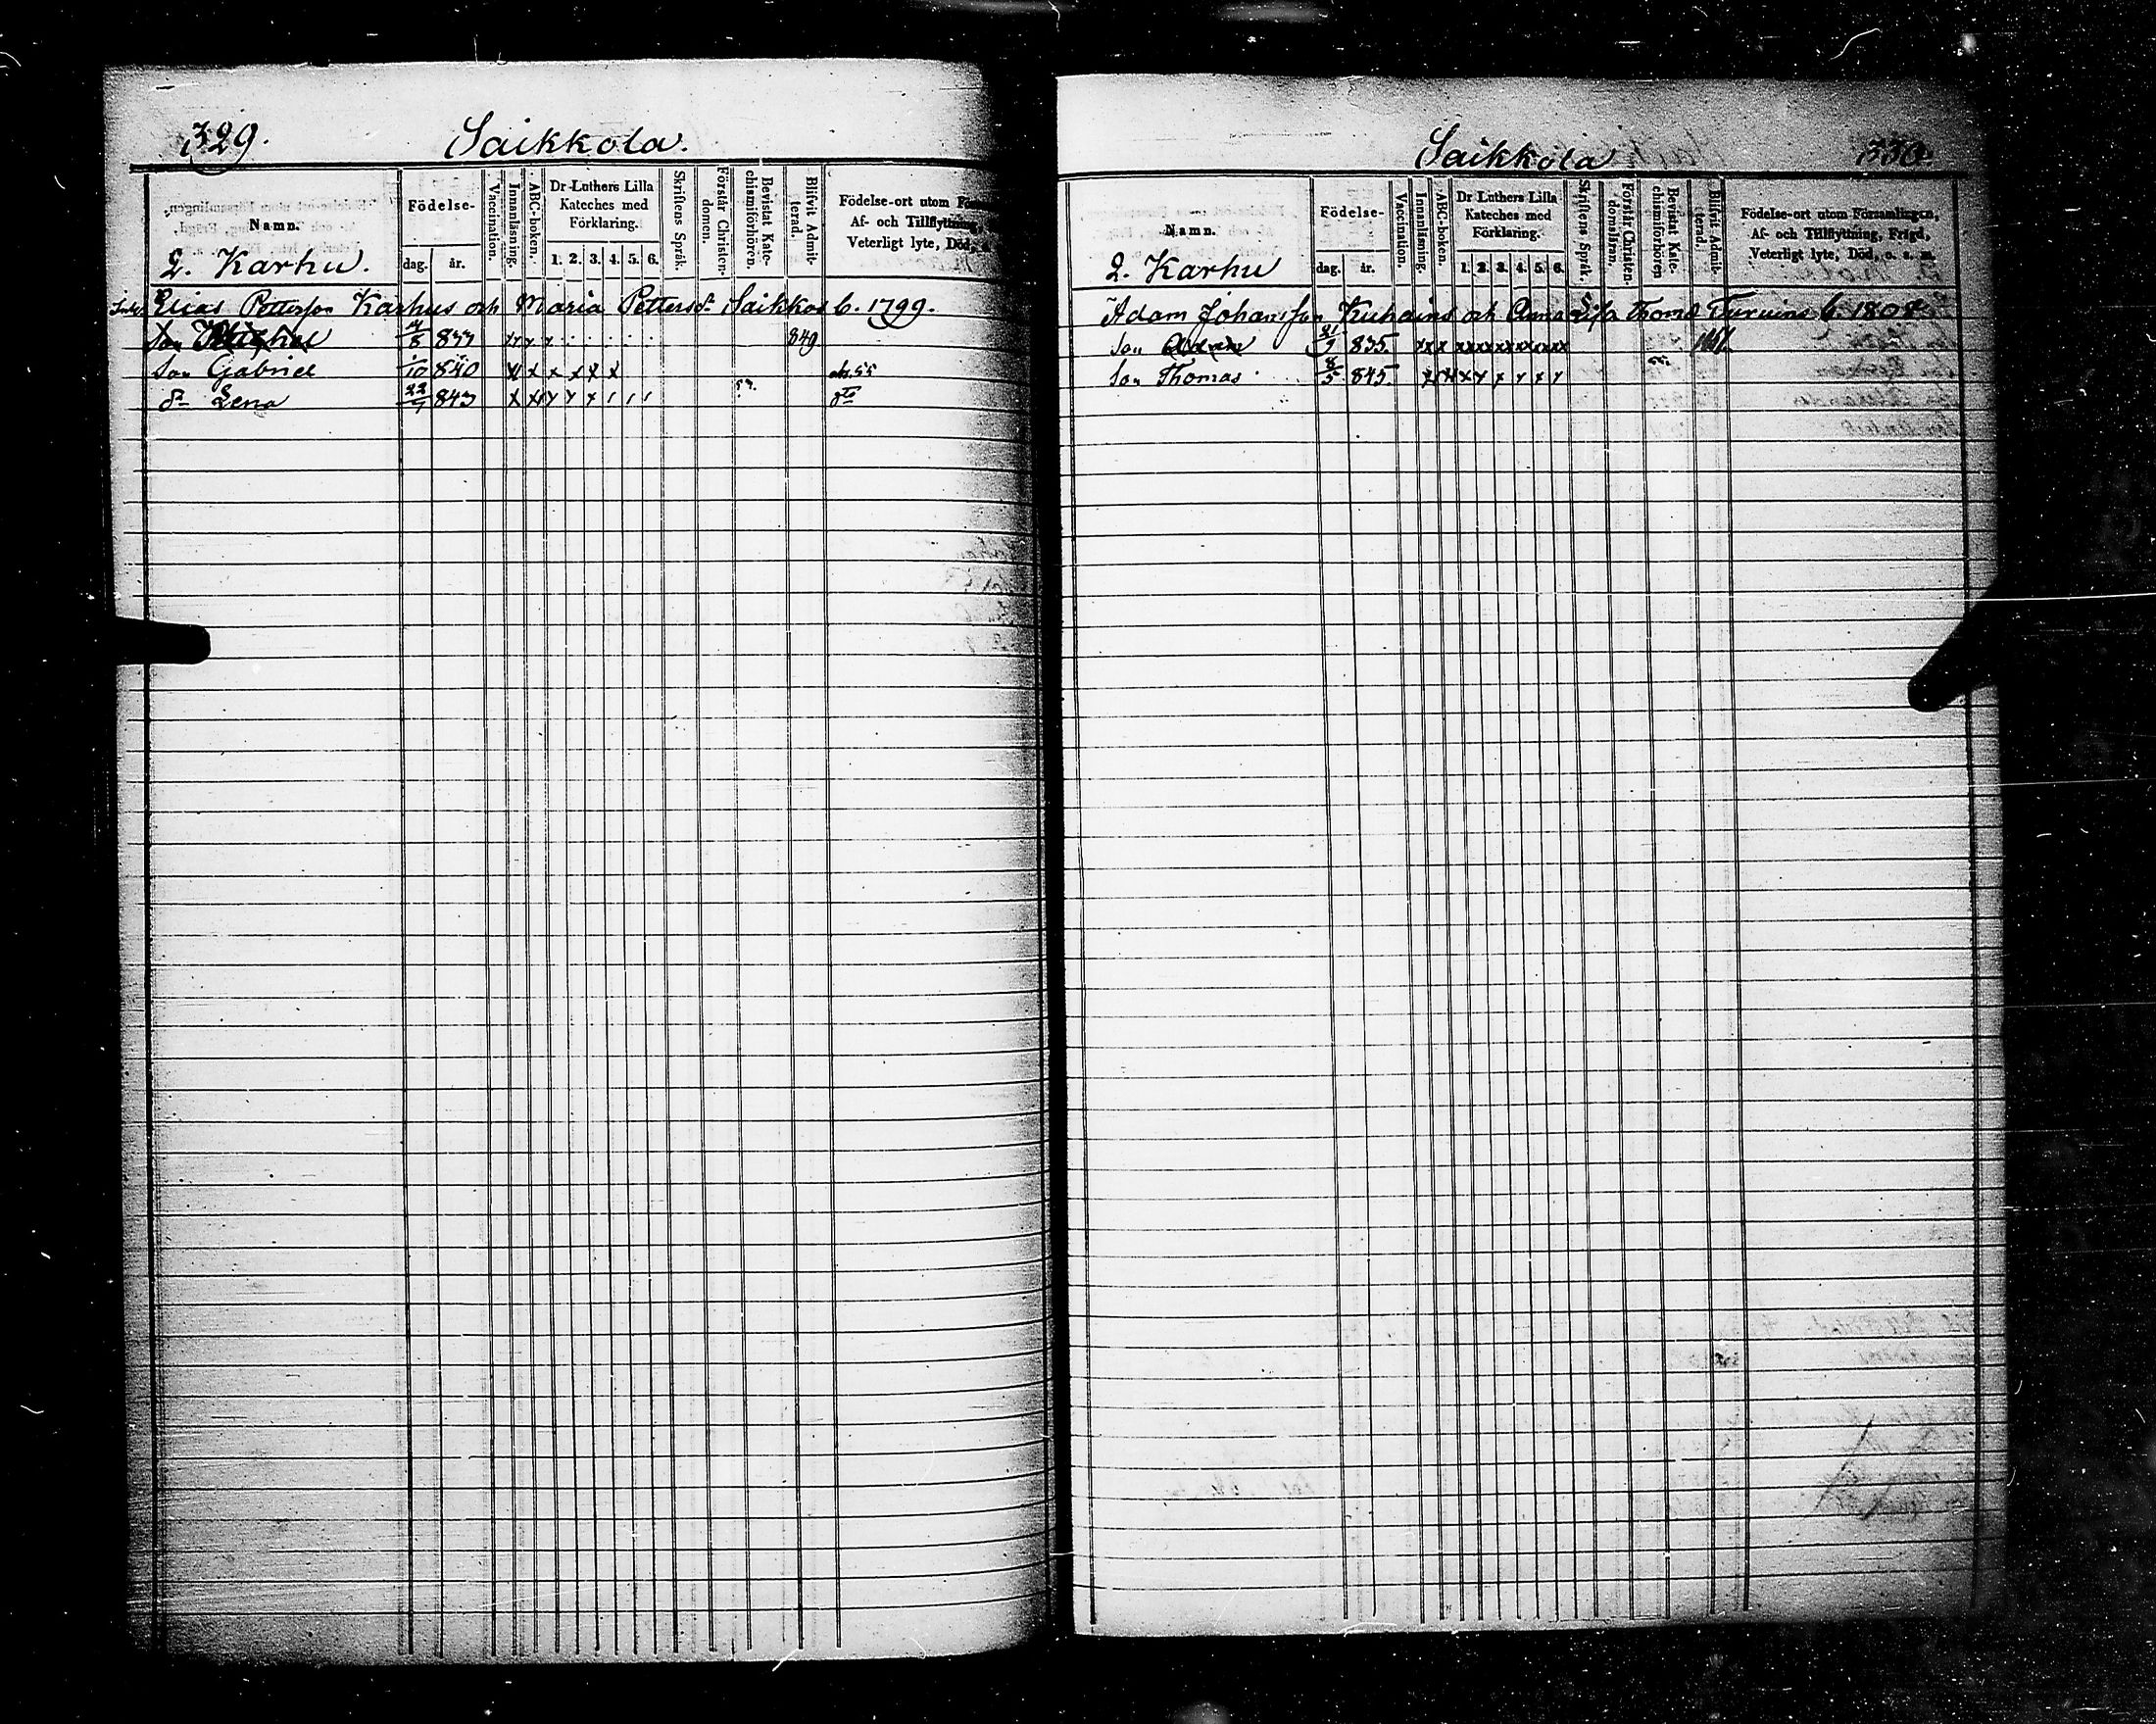 329. Saikkola.
Namn. Födelse- Vaccination. Innanläsning. ABC-boken. Dr Luthers Lilla Kateches med Förklaring. Skriftens Språk. Förstår Christendomen. Bevistat Katechismiförhören. Blifvit Admitterad. Födelse-ort utom
Af- och Tillflyttning,
Veterligt lyte, Död,
2. Karhu. dag. år. 1. 2. 3. 4. 5. 6.
Elias Pettersson Karhus och Maria Pettersdr Saikkos b. 1799.
Son Michel 4/8 833 849
Son Gabriel 1/10 840 55
dr Lena 22/7 843 do
Saikkola 330.
Namn. Födelse- Vaccination. Innanläsning. ABC-boken. Dr Luthers Lilla Kateches med Förklaring. Skriftens Språk. Förstår Christendomsläran. Bevistat Katechismiförhören Blifvit Admitterad. Födelse-ort utom Församlingen,
Af- och Tillflyttning, Frigd,
Veterligt lyte, Död, o. s. m.
2. Karhu dag. år. 1. 2. 3. 4. 5. 6.
Adam Johansson och Anna Lisa b. 1808
Son Adam 21/7 835.
Son Thomas 8/5 845.